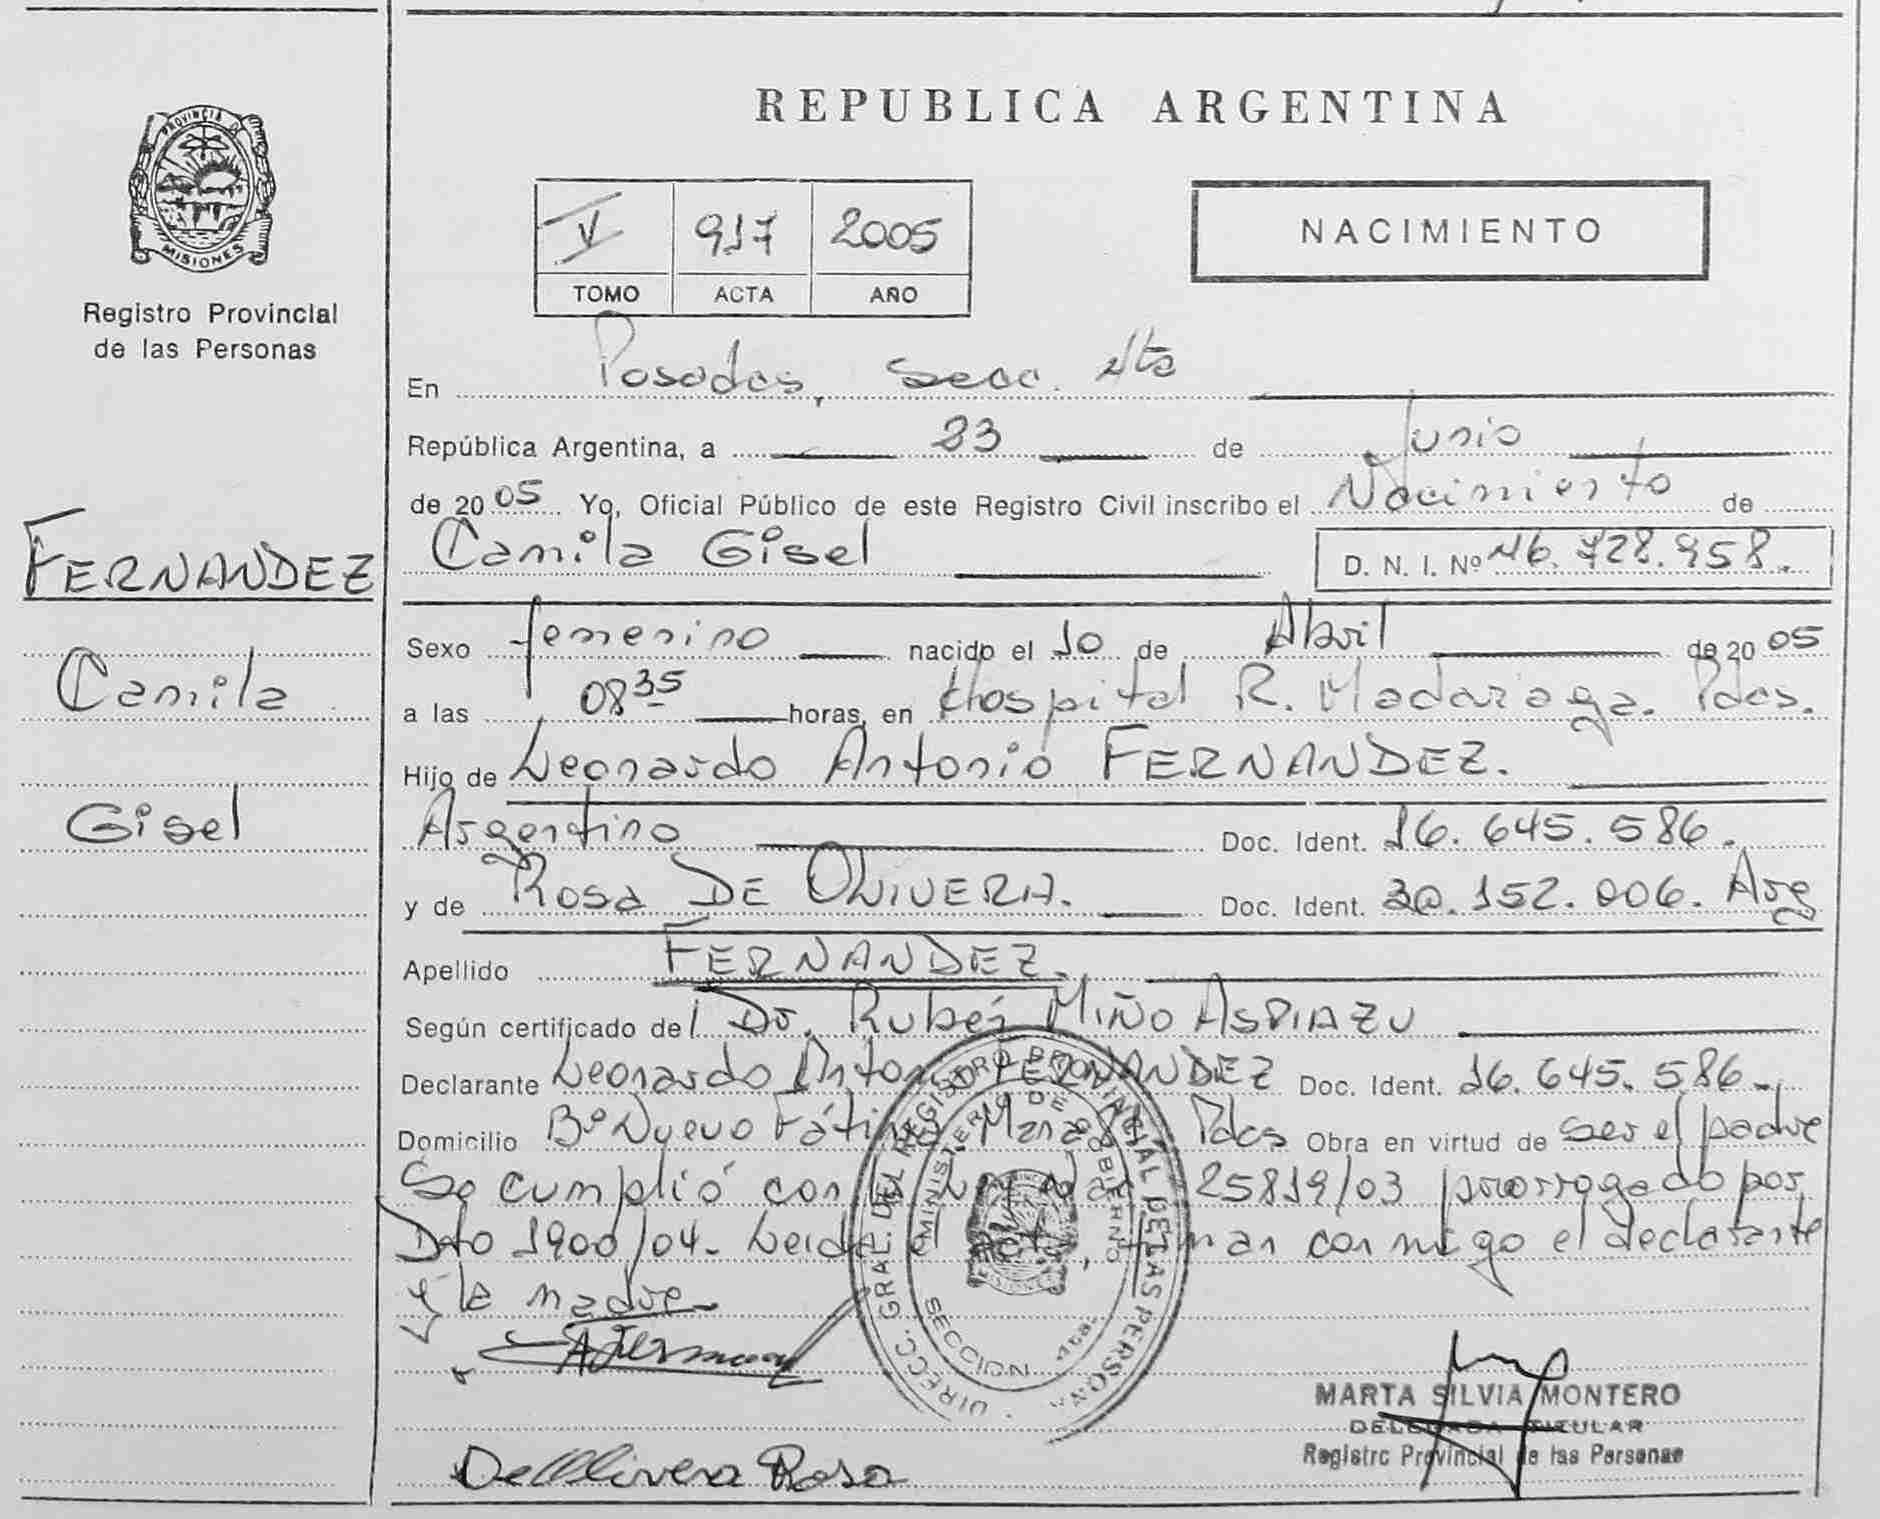 REPUBLICA ARGENTINA
PROVINCIA DE MISIONES
Registro Provincial
de las Personas
V 917 2005
TOMO ACTA AÑO
NACIMIENTO
En Posadas, Secc. 4ta
República Argentina, a 23 de Junio
de 2005 Yo, Oficial Público de este Registro Civil inscribo el Nacimiento de
Camila Gisel D. N. I. Nº 46.728.958.
FERNANDEZ
Camila
Gisel
Sexo femenino nacido el 10 de Abril de 2005
a las 08 35 horas, en Hospital R. Madariaga. Pdas.
Hijo de Leonardo Antonio FERNANDEZ.
Argentino Doc. Ident. 16.645.586.
y de Rosa DE OLIVERA. Doc. Ident. 30.152.006. Arg
Apellido FERNANDEZ.
Según certificado del Dr. Rubén MIÑO ASPIAZU
Declarante Leonardo Antonio FERNANDEZ Doc. Ident. 16.645.586.
Domicilio Bº Nuevo Fátima Pdas Obra en virtud de ser el padre
Se cumplió con 25819/03 prorrogado por
Dto 1900/04. Leida el firman conmigo el declarante
y la madre.
DIRECC. GRAL. DEL REGISTRO PROVINCIAL DE LAS PERSONAS
MINISTERIO DE GOBIERNO
SECCION 4ta.
De Olivera Rosa
MARTA SILVIA MONTERO
DELEGADA TITULAR
Registro Provincial de las Personas